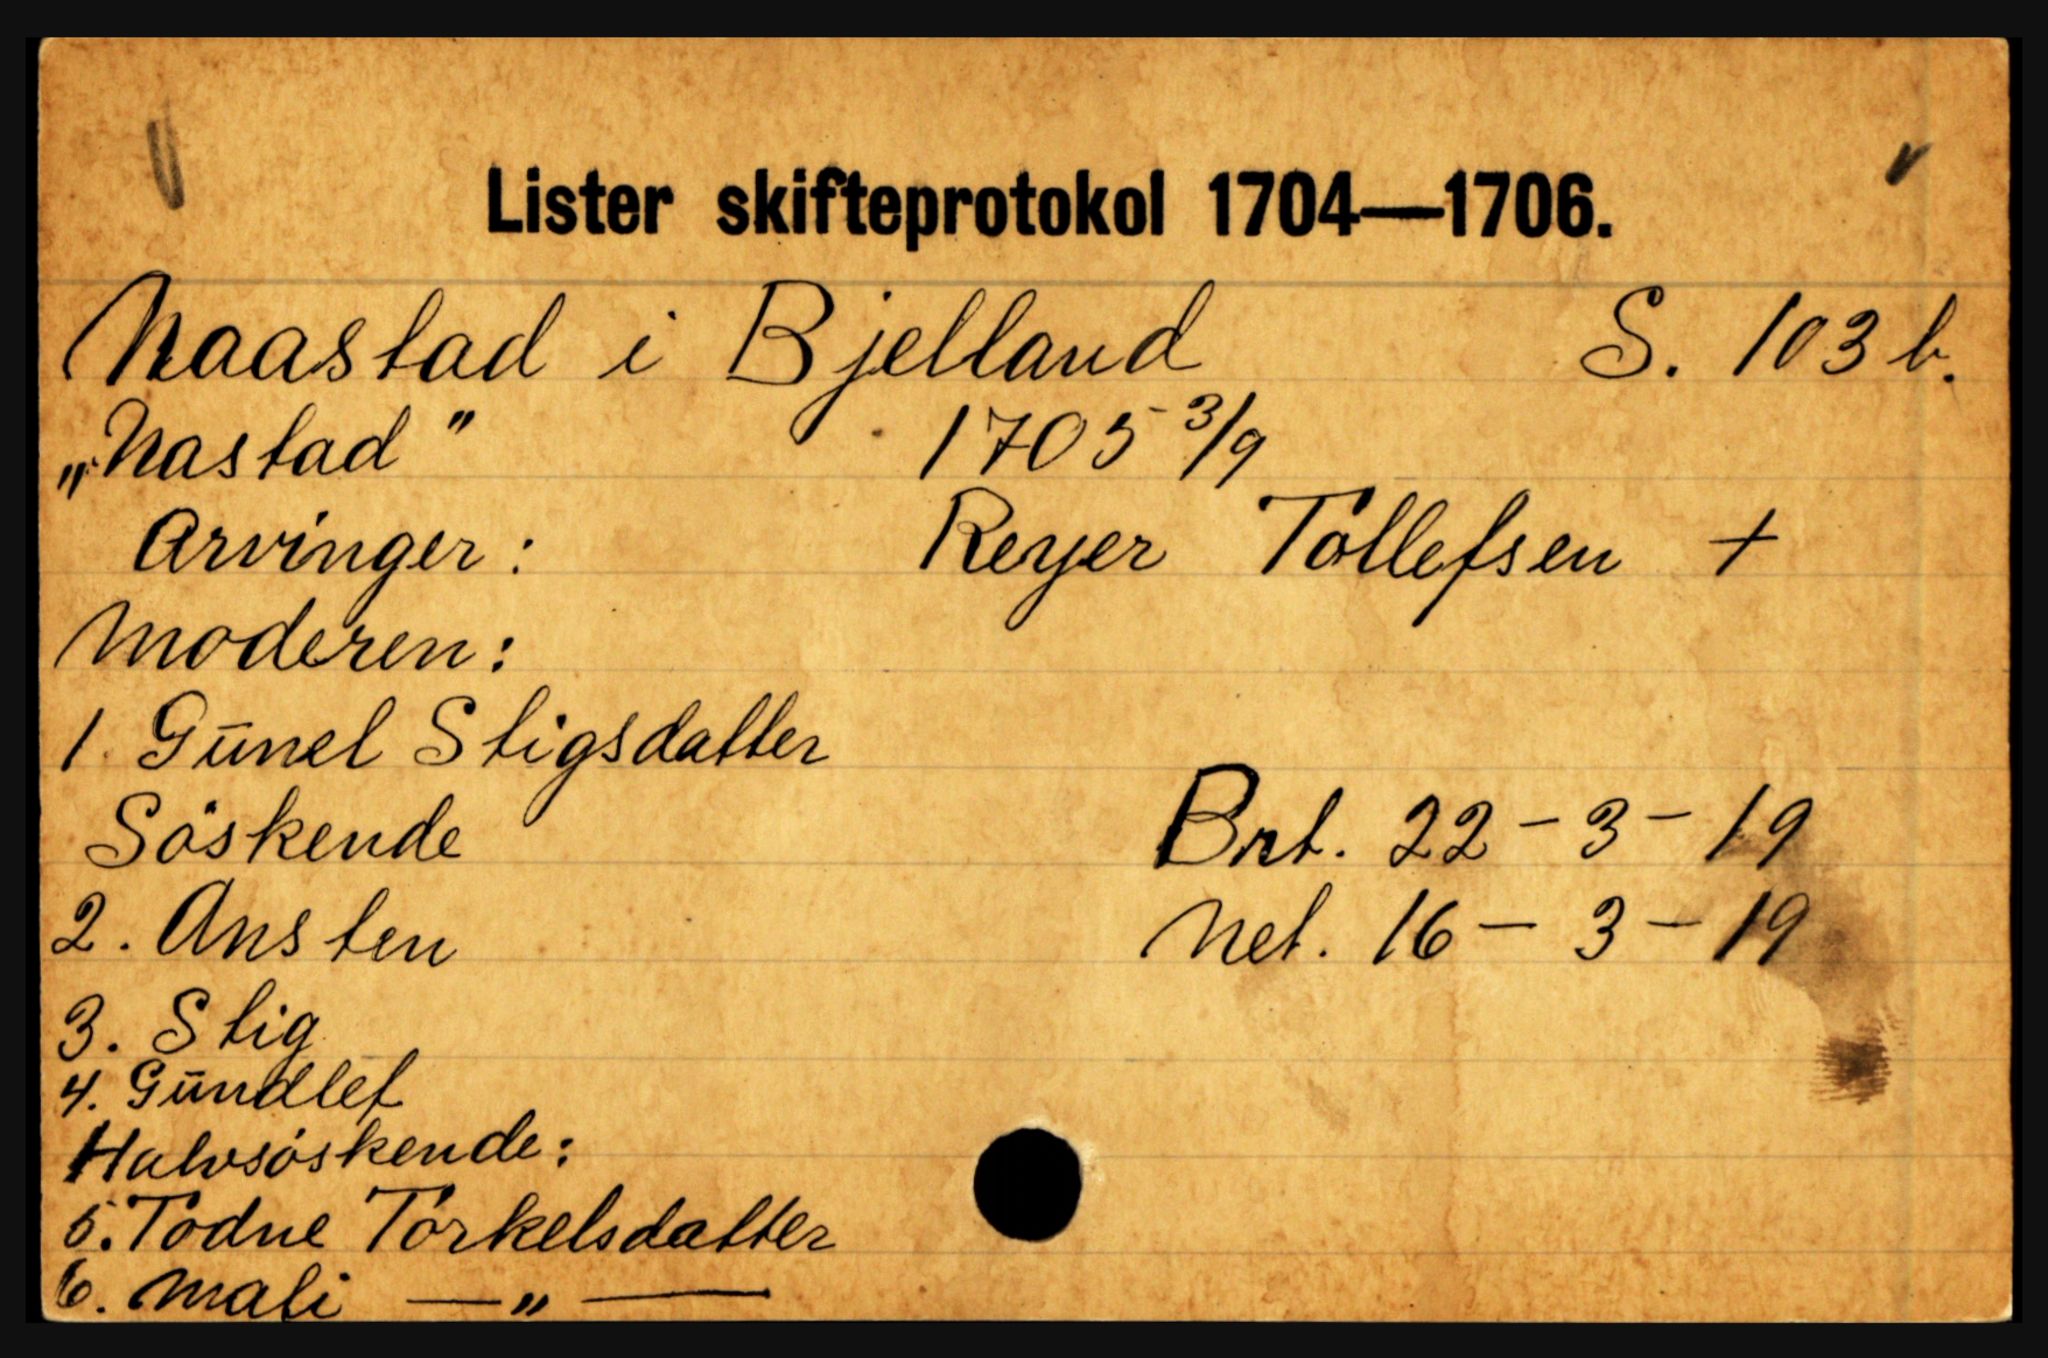 Lister skifteprotokol 1704—1706.
Naastad i Bjelland S. 103 b.
„Nastad" 1705 3/9
Arvinger: Reyer Tollefsen +
Moderen:
1. Gunel Stigsdatter
Söskende Brt. 22-3-19
2. Ansten Net. 16-3-19
3. Stig
4. Gundlef
Halvsöskende:
5. Todne Torkelsdatter
6. Mali —„—